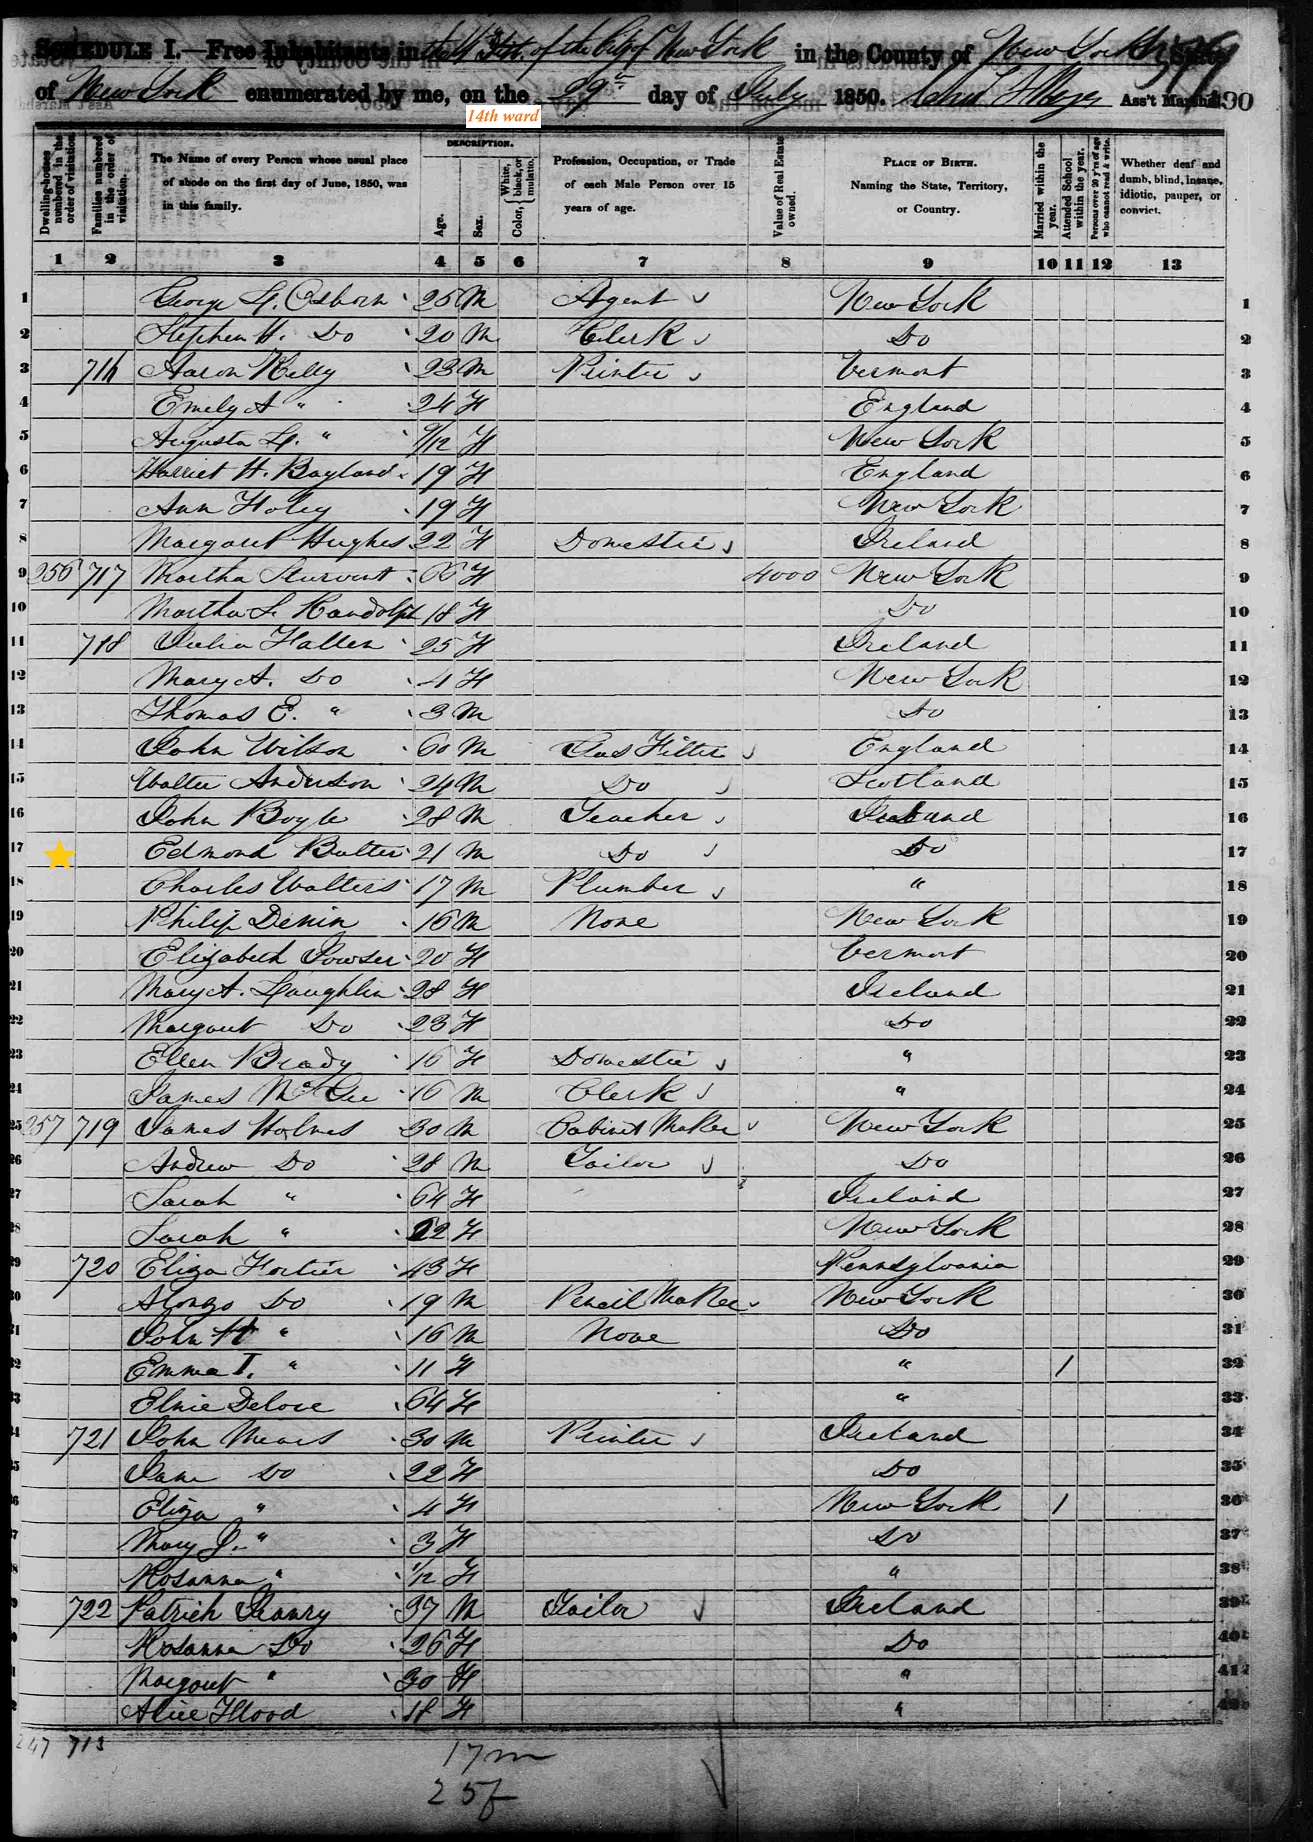 SCHEDULE I.—Free Inhabitants in the 14th Wd. of the City of New York in the County of New York State
of New York enumerated by me, on the 29th day of July 1850. Ass't Marshal. 390
14th ward
DESCRIPTION.
Dwelling-houses numbered in the order of visitation.
Families numbered in the order of visitation.
The Name of every Person whose usual place of abode on the first day of June, 1850, was in this family.
Age.
Sex.
Color, White, black, or mulatto.
Profession, Occupation, or Trade of each Male Person over 15 years of age.
Value of Real Estate owned.
PLACE OF BIRTH. Naming the State, Territory, or Country.
Married within the year.
Attended School within the year.
Persons over 20 y'rs of age who cannot read & write.
Whether deaf and dumb, blind, insane, idiotic, pauper, or convict.
1 2 3 4 5 6 7 8 9 10 11 12 13
1 George L. Osborn 25 M Agent New York 1
2 Stephen H. Do 20 M Clerk Do 2
3 716 Aaron Kelly 23 M Printer Vermont 3
4 Emely A " 24 F England 4
5 Augusta L. " 9/12 F New York 5
6 Harriet H. Bayland 19 F England 6
7 Ann Foley 19 F New York 7
8 Margaret Hughes 22 F Domestic Ireland 8
9 256 717 Martha Sturvent 66 F 4000 New York 9
10 Martha L. Randolph 18 F Do 10
11 718 Julia Hallen 25 F Ireland 11
12 Mary A. Do 4 F New York 12
13 Thomas E. " 3 M Do 13
14 John Wilson 60 M Gas Fitter England 14
15 Walter Anderson 24 M Do Scotland 15
16 John Boyle 28 M Teacher Ireland 16
17 Edmond Butler 21 M Do Do 17
18 Charles Walters 17 M Plumber " 18
19 Philip Denin 16 M None New York 19
20 Elizabeth Towser 20 F Vermont 20
21 Mary A. Laughlin 28 F Ireland 21
22 Margaret Do 23 F Do 22
23 Ellen Brady 16 F Domestic " 23
24 James McGee 16 M Clerk " 24
25 257 719 James Holmes 30 M Cabinet Maker New York 25
26 Andrew Do 28 M Tailor Do 26
27 Sarah " 64 F Ireland 27
28 Sarah " 22 F New York 28
29 720 Eliza Fortier 43 F Pennsylvania 29
30 Alonzo Do 19 M Pencil Maker New York 30
31 John H " 16 M None Do 31
32 Emma I. " 11 F " 1 32
33 Elsie Delove 64 F " 33
34 721 John Mears 30 M Printer Ireland 34
35 Jane Do 22 F Do 35
36 Eliza " 4 F New York 1 36
37 Mary J. " 3 F Do 37
38 Rosanna " 1/12 F " 38
39 722 Patrick 37 M Tailor Ireland 39
40 Rosanna Do 26 F Do 40
41 Margaret " 30 F " 41
42 Alice Flood 18 F " 42
247 713
17m
25f